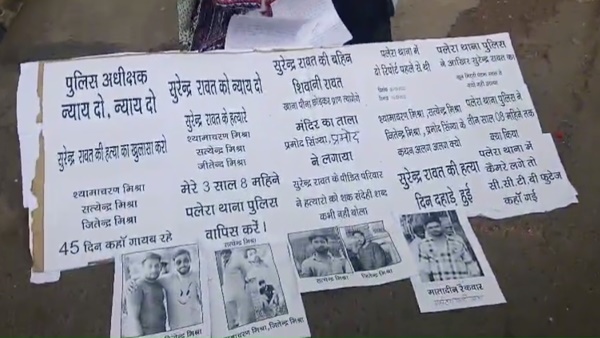 पुलिस अधीक्षक
न्याय दो, न्याय दो
सुरेन्द्र रावत की हत्या का खुलासा करो
श्यामाचरण मिश्रा
सत्येन्द्र मिश्रा
जितेन्द्र मिश्रा
45 दिन कहाँ गायब रहे
सुरेन्द्र रावत को न्याय दो
सुरेन्द्र रावत के हत्यारे
श्यामाचरण मिश्रा
सत्येन्द्र मिश्रा
जीतेन्द्र मिश्रा
मेरे 3 साल 8 महिने
पलेरा थाना पुलिस
वापिस करें।
सुरेन्द्र रावत की बहिन
शिवानी रावत
खाना पीना छोड़कर प्राण त्यागेगी
मंदिर का ताला
प्रमोद सिंध्या, प्रमोद
ने लगाया
सुरेन्द्र रावत के पीडित परिवार
ने हत्यारो को शक संदेही शब्द
कभी नहीं बोला
पलेरा थाना में
दो रिपोर्ट पहले से थी
श्यामाचरण मिश्रा, सत्येन्द्र मिश्रा
जितेन्द्र मिश्रा, प्रमोद सिंध्या के
कथन अलग अलग क्यों
सुरेन्द्र रावत की हत्या
दिन दहाड़े हुई
पलेरा थाना पुलिस
ने आखिर सुरेन्द्र रावत का
पलेरा थाना पुलिस ने
तीन साल 08 महिने तक
क्या किया
पलेरा थाना में
कैमरे लगे तो
सी.सी.टी.व्ही फुटेज
कहाँ गई
मिश्रा
सत्येन्द्र मिश्रा
जितेन्द्र मिश्रा
सत्येन्द्र मिश्रा
जितेन्द्र मिश्रा
मातादीन रैकवार